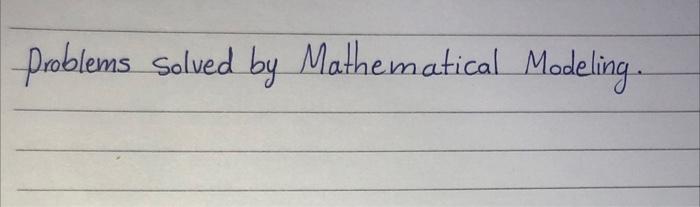 Problems solved by Mathematical Modeling.